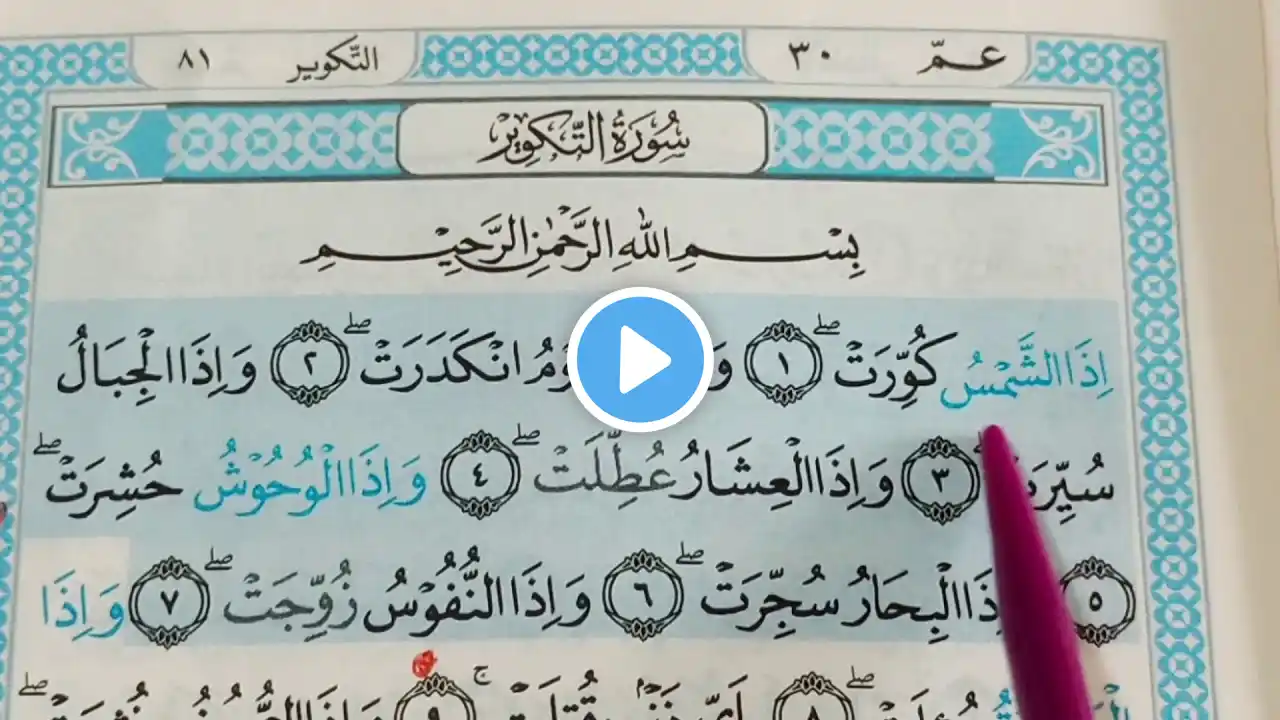 عمّ ٣٠ التّكوير ٨١
سُوْرَةُ التَّكْوِيْرِ
بِسْمِ اللهِ الرَّحْمٰنِ الرَّحِيْمِ
اِذَا الشَّمْسُ كُوِّرَتْۖ ١ انْكَدَرَتْۖ ٢ وَاِذَا الْجِبَالُ
سُيِّرَتْۖ ٣ وَاِذَا الْعِشَارُ عُطِّلَتْۖ ٤ وَاِذَا الْوُحُوْشُ حُشِرَتْۖ
٥ الْبِحَارُ سُجِّرَتْۖ ٦ وَاِذَا النُّفُوْسُ زُوِّجَتْۖ ٧ وَاِذَا
٨ قُتِلَتْۚ ٩